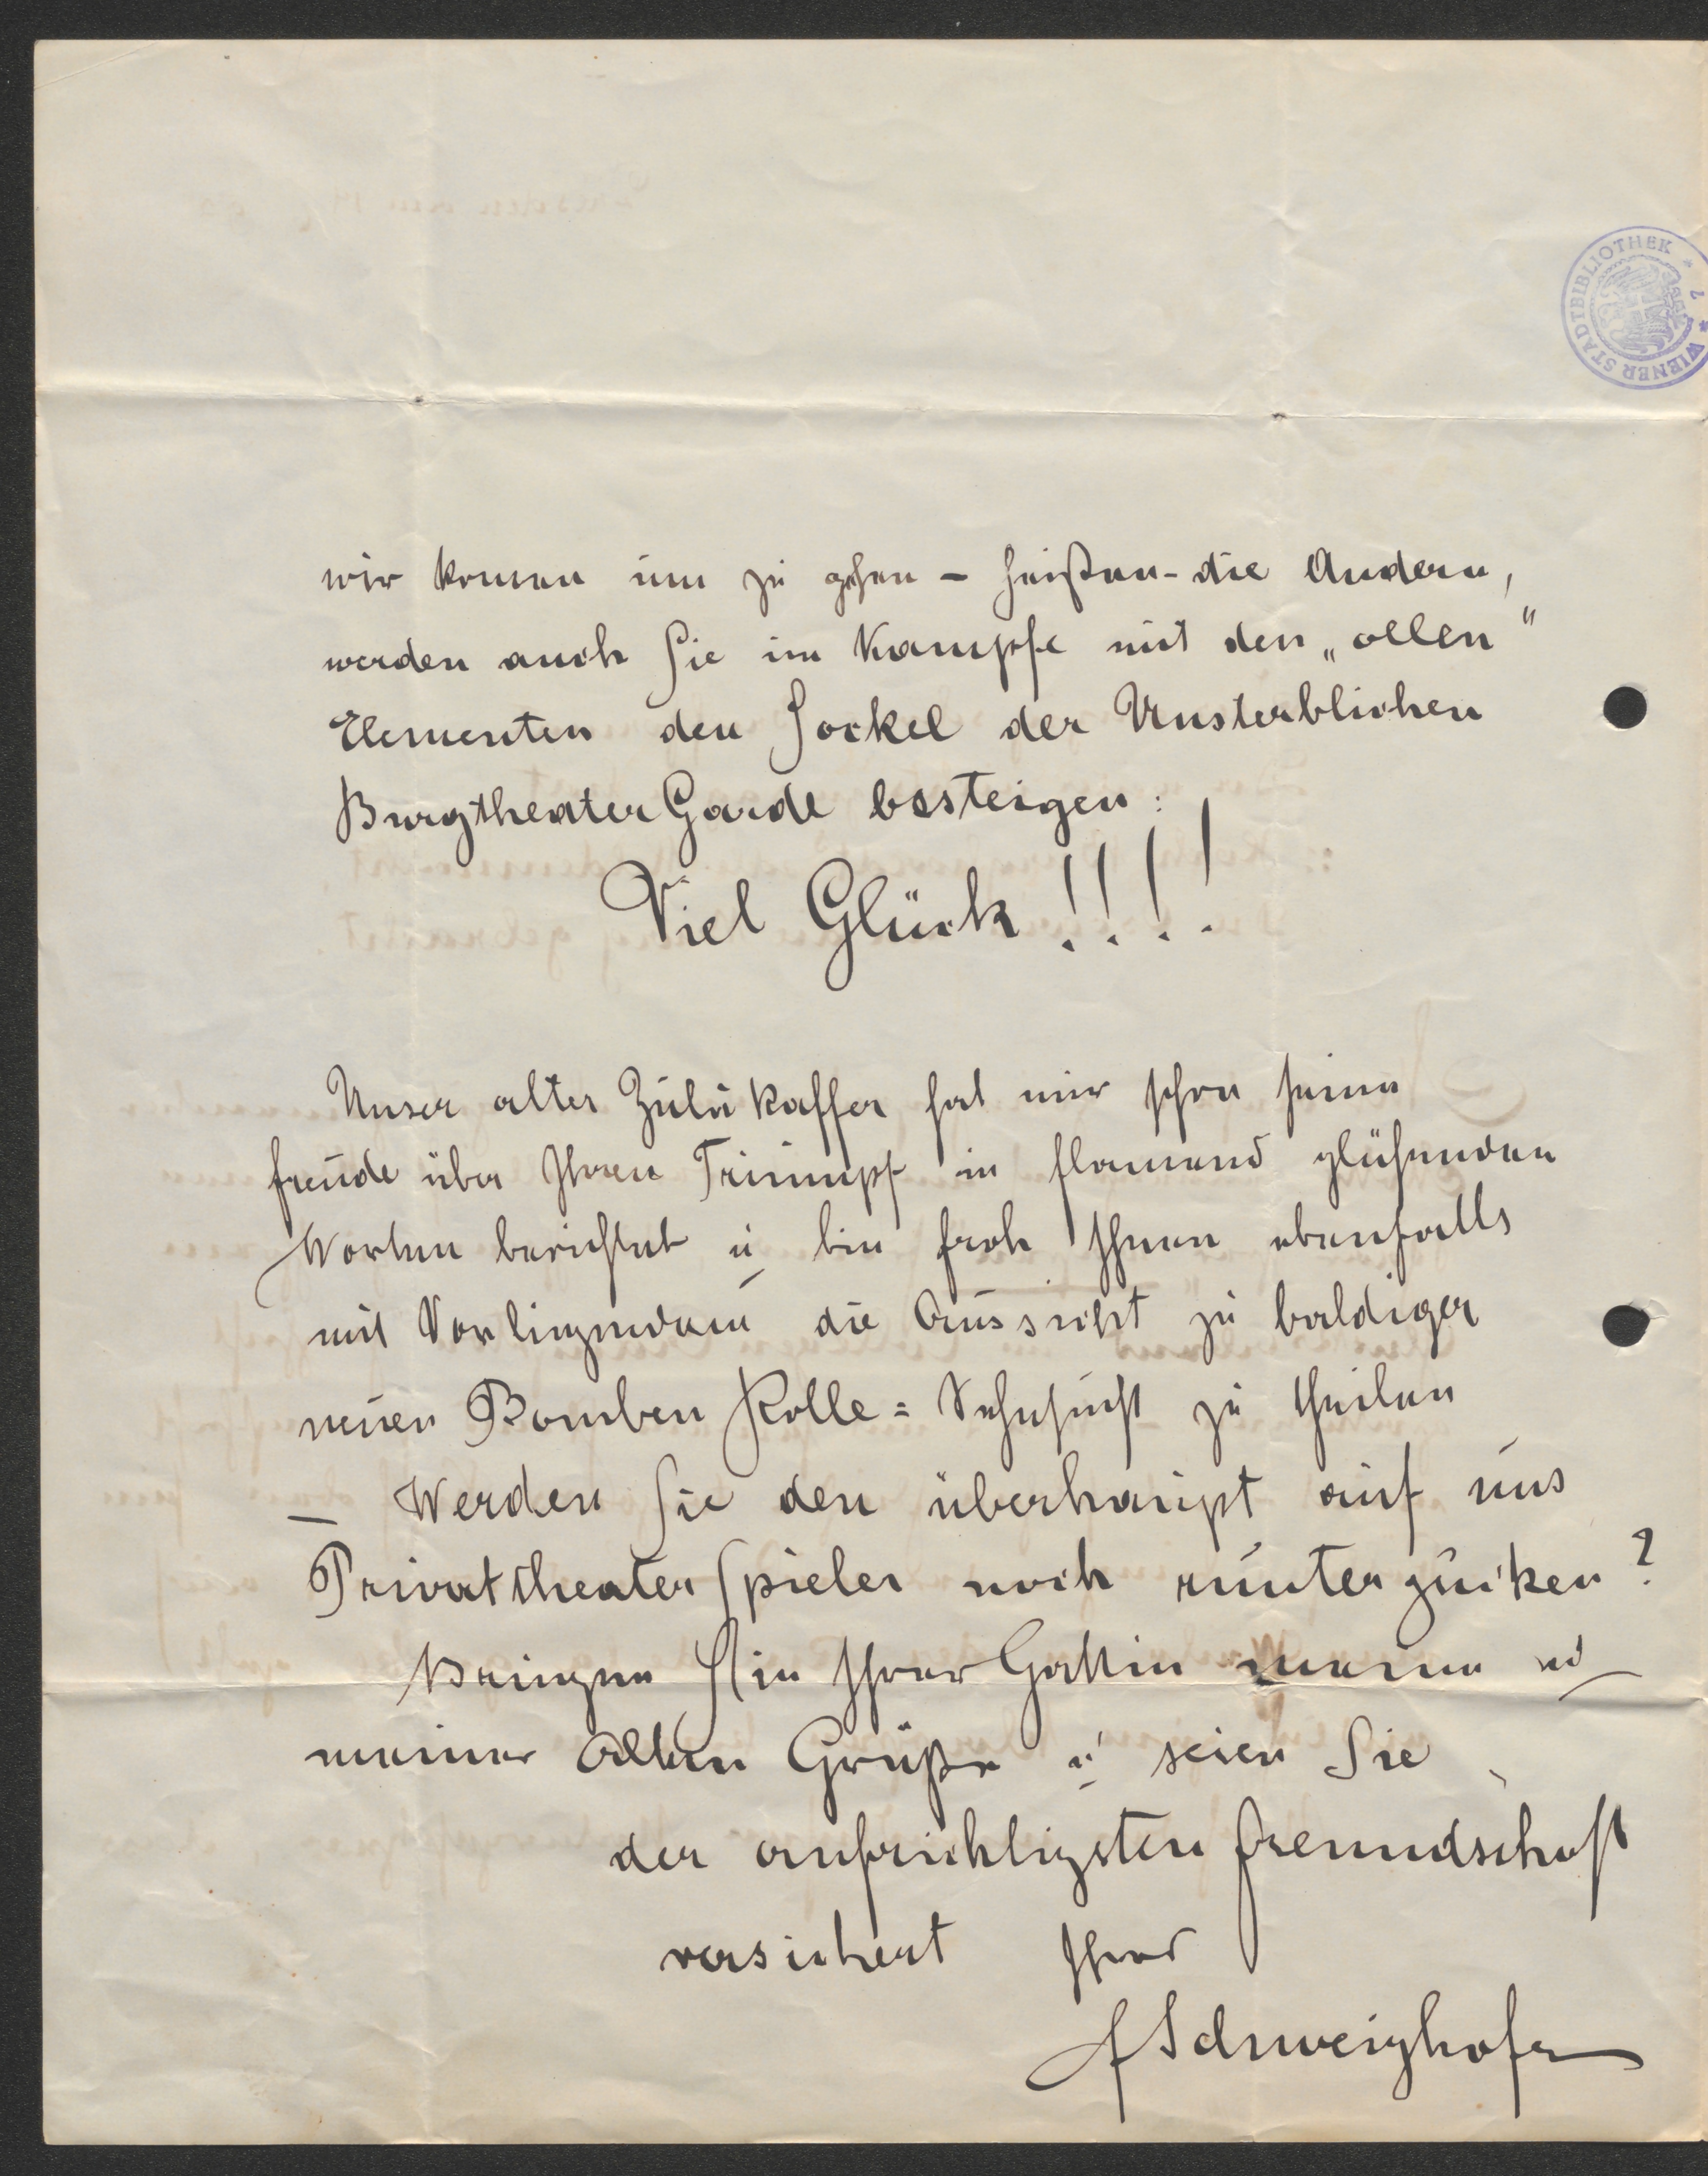 WIENER STADTBIBLIOTHEK
wir komen um zu gehen – heißen – die Andern,
werden auch Sie im Kampfe mit den „ollen"
Elementen den Sockel der Unsterblichen
Burgtheater Garde besteigen:
Viel Glück!!!!
Unser alter Zulukaffer hat mir schon seine
Freude über Ihren Triumpf in flamend glühenden
Worten berichtet u bin froh Ihnen ebenfalls
mit Vorliegendem die Aussicht zu baldiger
neuer Bomben Rolle = Sehnsucht zu theilen
– Werden Sie den überhaupt auf uns
Privattheater Spieler noch runter gucken?
Bringen Sie Ihrer Gattin meine und
meiner Alten Grüße u seien Sie
der aufrichtigsten Freundschaft
versichert Ihres
FSchweighofer